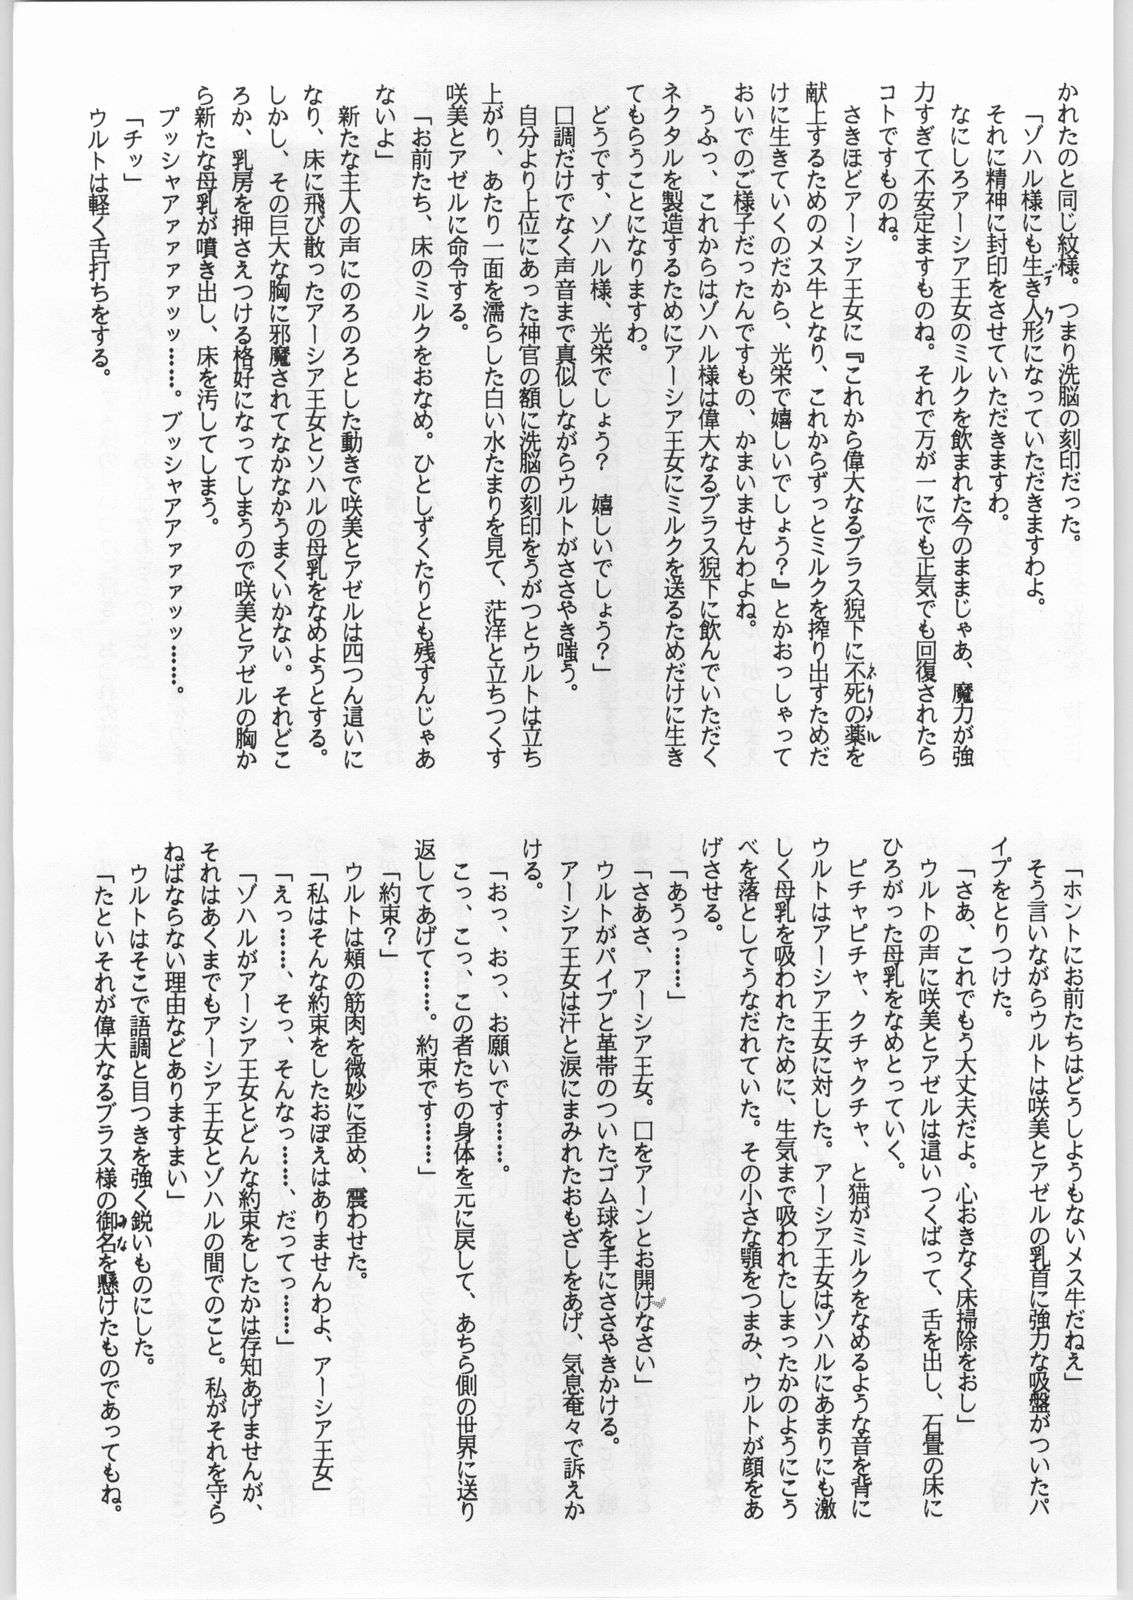 かれたのと同じ紋様。つまり洗脳の刻印だった。
「ゾハル様にも生き人形になっていただきますわよ。
それに精神に封印をさせていただきますわ。
なにしろアーシア王女のミルクを飲まれた今のままじゃあ、魔力が強
力すぎて不安定ますものね。それで万が一にでも正気でも回復されたら
コトですものね。
さきほどアーシア王女に『これから偉大なるブラス猊下に不死の薬を
献上するためのメス牛となり、これからずっとミルクを搾り出すためだ
けに生きていくのだから、光栄で嬉しいでしょう？』とかおっしゃって
おいでのご様子だったんですもの、かまいませんわよね。
うふっ、これからはゾハル様は偉大なるブラス猊下に飲んでいただく
ネクタルを製造するためにアーシア王女にミルクを送るためだけに生き
てもらうことになりますわ。
どうです、ゾハル様、光栄でしょう？　嬉しいでしょう？」
口調だけでなく声音まで真似しながらウルトがささやき嗤う。
自分より上位にあった神官の額に洗脳の刻印をうがつとウルトは立ち
上がり、あたり一面を濡らした白い水たまりを見て、茫洋と立ちつくす
咲美とアゼルに命令する。
「お前たち、床のミルクをおなめ。ひとしずくたりとも残すんじゃあ
ないよ」
新たな主人の声にのろのろとした動きで咲美とアゼルは四つん這いに
なり、床に飛び散ったアーシア王女とソハルの母乳をなめようとする。
しかし、その巨大な胸に邪魔されてなかなかうまくいかない。それどこ
ろか、乳房を押さえつける格好になってしまうので咲美とアゼルの胸か
ら新たな母乳が噴き出し、床を汚してしまう。
プッシャアァァァァッッ……。ブッシャアアァァァッッ……。
「チッ」
ウルトは軽く舌打ちをする。
「ホントにお前たちはどうしようもないメス牛だねえ」
そう言いながらウルトは咲美とアゼルの乳首に強力な吸盤がついたパ
イプをとりつけた。
「さあ、これでもう大丈夫だよ。心おきなく床掃除をおし」
ウルトの声に咲美とアゼルは這いつくばって、舌を出し、石畳の床に
ひろがった母乳をなめとっていく。
ピチャピチャ、クチャクチャ、と猫がミルクをなめるような音を背に
ウルトはアーシア王女に対した。アーシア王女はゾハルにあまりにも激
しく母乳を吸われたために、生気まで吸われたしまったかのようにこう
べを落としてうなだれていた。その小さな顎をつまみ、ウルトが顔をあ
げさせる。
「あうっ……」
「さあさ、アーシア王女。口をアーンとお開けなさい」
ウルトがパイプと革帯のついたゴム球を手にささやきかける。
アーシア王女は汗と涙にまみれたおもざしをあげ、気息奄々で訴えか
ける。
「おっ、おっ、お願いです……。
こっ、こっ、この者たちの身体を元に戻して、あちら側の世界に送り
返してあげて……。約束です……」
「約束？」
ウルトは頬の筋肉を微妙に歪め、震わせた。
「私はそんな約束をしたおぼえはありませんわよ、アーシア王女」
「えっ……、そっ、そんなっ……、だってっ……」
「ゾハルがアーシア王女とどんな約束をしたかは存知あげませんが、
それはあくまでもアーシア王女とゾハルの間でのこと。私がそれを守ら
ねばならない理由などありますまい」
ウルトはそこで語調と目つきを強く鋭いものにした。
「たといそれが偉大なるブラス様の御名を懸けたものであってもね。